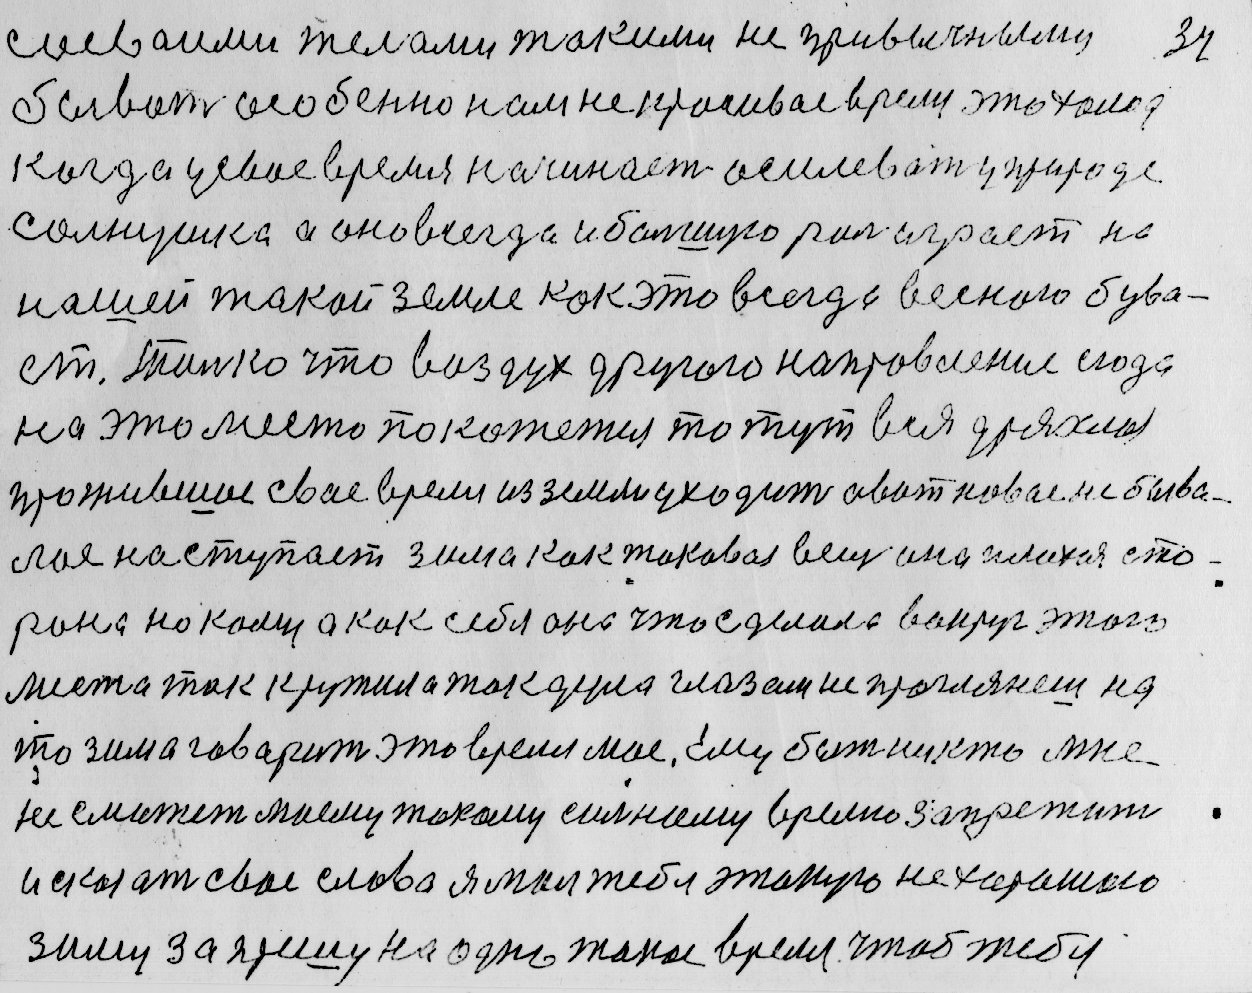 своваими телами такими не привычными 34
былват особенно нам не красивае время это холод
когда цевое время начинает осилеват у природе
солнушка а оно всегда и балшую рол играет на
нашей такой земле как это всегда весною бува-
ет. Толко что воздух другого направление сюда
на это место покотется то тут вся дряхлая
проживешое свое время из земли уходит а вот новае не быва-
лое наступает зима как таковая вещ она плохая сто-
рона но кому а как себя она что сделала вокруг этого
места так кружила так дула глазам не проглянеш на
то зима говарит это время мое. Ему быт никто мне
не сможет моему такому силному времю запретит
и сказат свое слова я мол тебя этакую не харошаю
зиму запрешу на одно такое время чтоб тебя